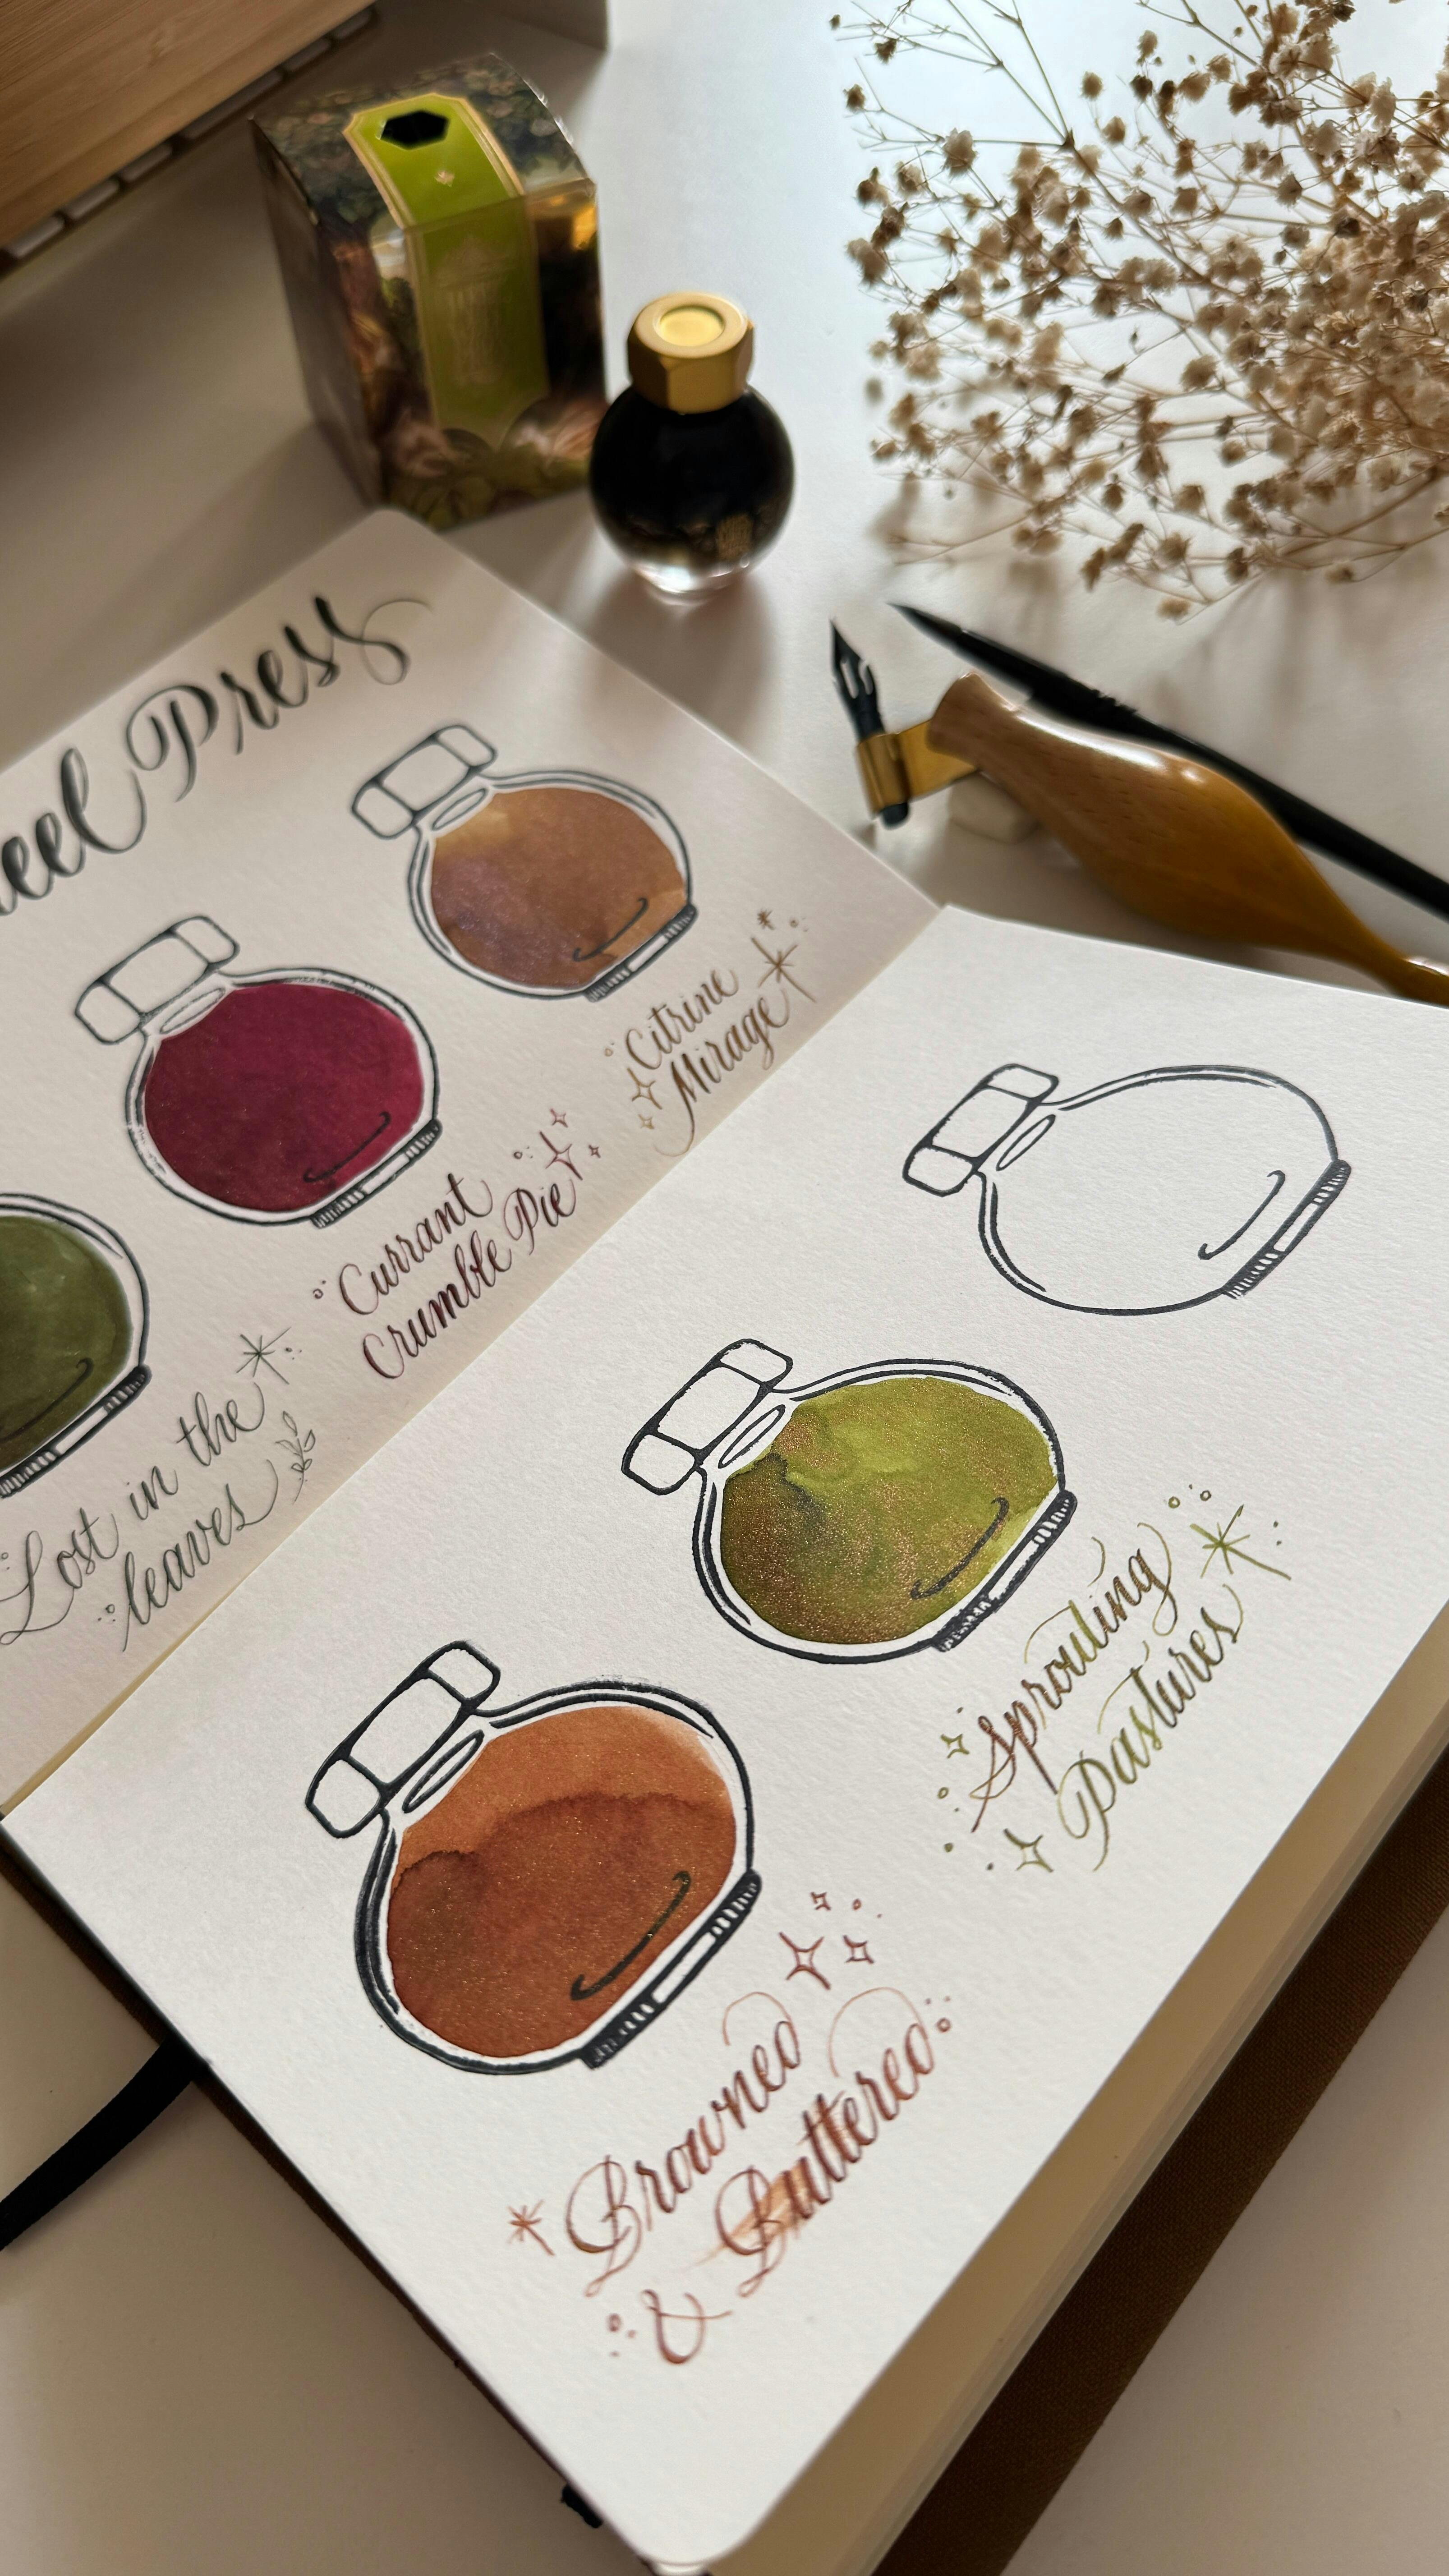 eel Press
Lost in the
leaves
Currant
Crumble Pie
Citrine
Mirage
Browned
& Buttered
Sprouting
Pastures